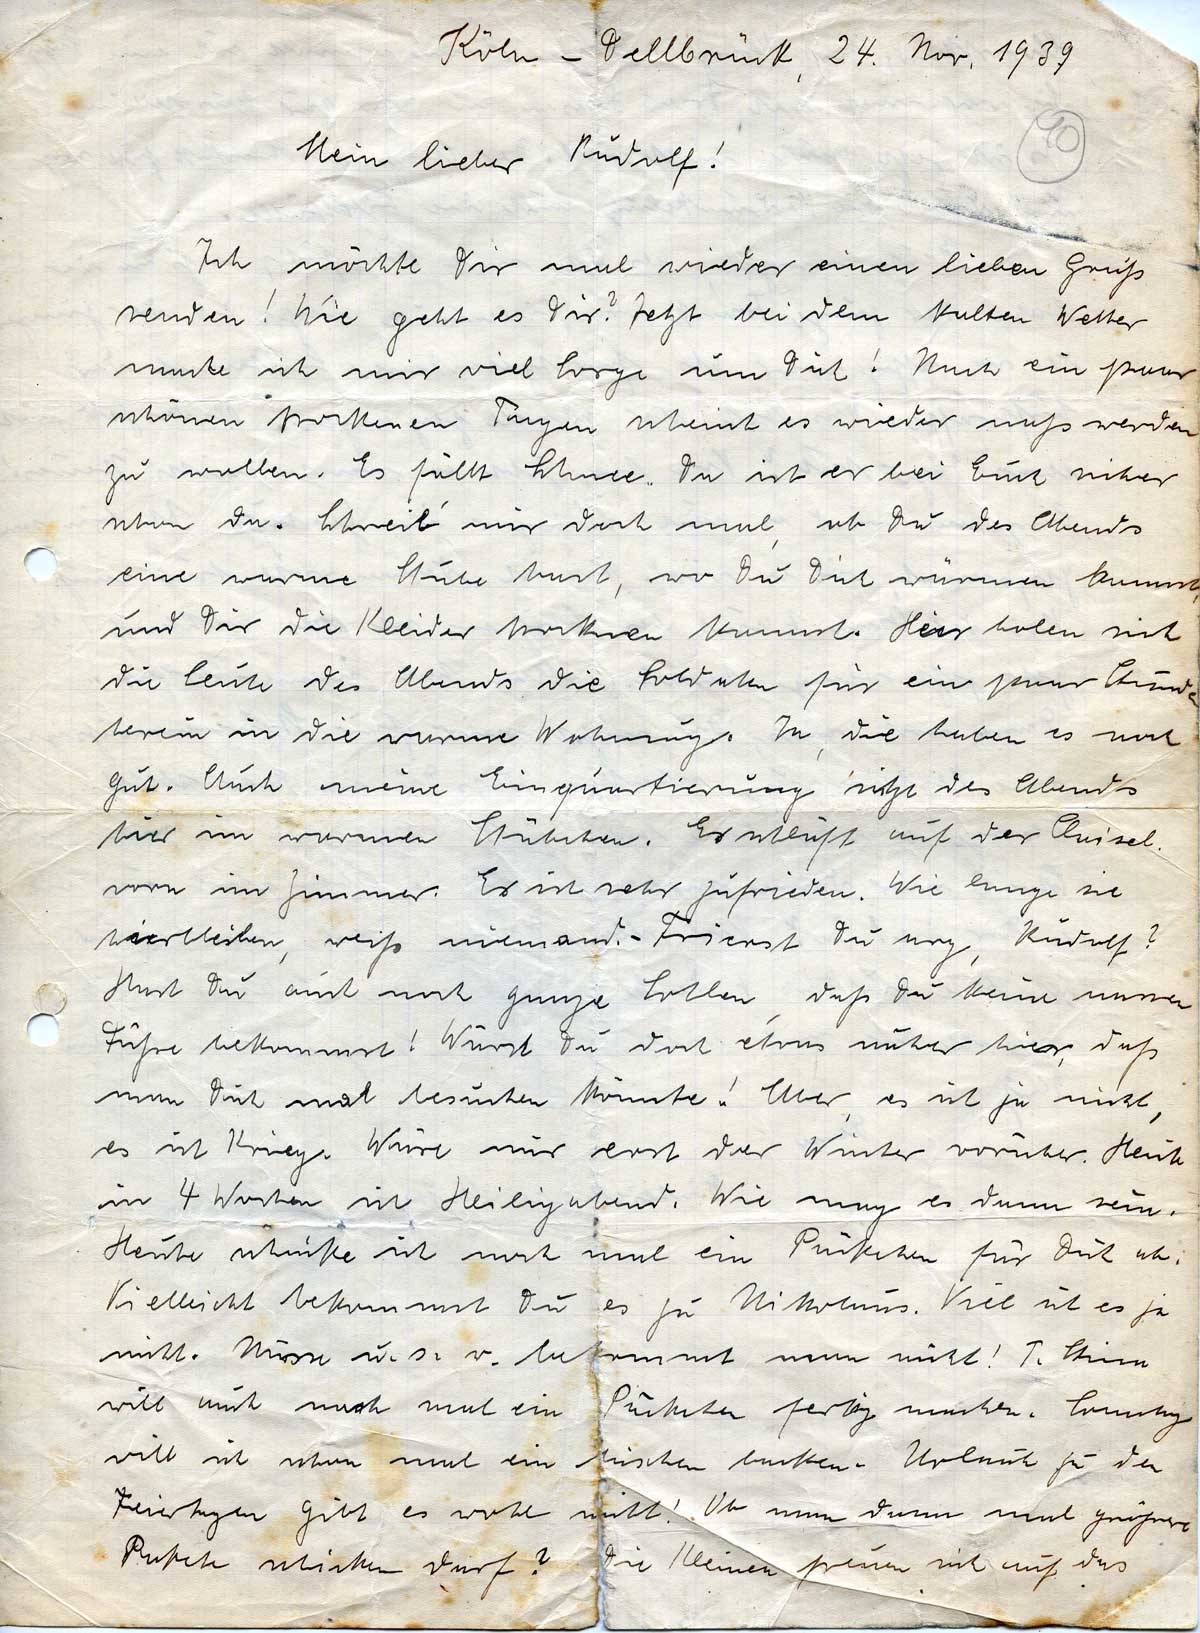 Köln - Dellbrück, 24. Nov. 1939
10
Mein lieber Rudolf!
Ich möchte Dir mal wieder einen lieben Gruß
senden! Wie geht es Dir? Jetzt bei dem kalten Wetter
mache ich mir viel Sorge um Dich! Nach ein paar
schönen trockenen Tagen scheint es wieder naß werden
zu wollen. Es fällt Schnee. Da ist er bei Euch sicher
schon da. Schreib' mir doch mal, ob Du des Abends
eine warme Stube hast, wo Du Dich wärmen kannst,
und Dir die Kleider trocknen kannst. Hier holen sich
die Leute des Abends die Soldaten für ein paar Stunden
herein in die warme Wohnung. Ja, die haben es noch
gut. Auch meine Einquartierung sitzt des Abends
hier im warmen Stübchen. Er schläft auf der Chaisel.
vorn im Zimmer. Er ist sehr zufrieden. Wie lange sie
hierbleiben, weiß niemand. - Frierst Du arg, Rudolf?
Hast Du auch noch ganze Sohlen, daß Du keine nassen
Füße bekommst! Wärst Du doch etwas näher hier, daß
man Dich mal besuchen könnte! Aber, es ist ja nicht,
es ist Krieg. Wäre nur erst der Winter vorüber. Heute
in 4 Wochen ist Heiligabend. Wie mag es dann sein.
Heute schicke ich noch mal ein Päckchen für Dich ab.
Vielleicht bekommst Du es zu Nikolaus. Viel ist es ja
nicht. Nüsse u. s. w. bekommt man nicht! T. Stina
will auch noch mal ein Päckchen fertig machen. Sonntag
will ich schon mal ein bischen backen. Urlaub zu den
Feiertagen gibt es wohl nicht! Ob man dann mal größere
Pakete schicken darf? Die Kleinen freuen sich auf das